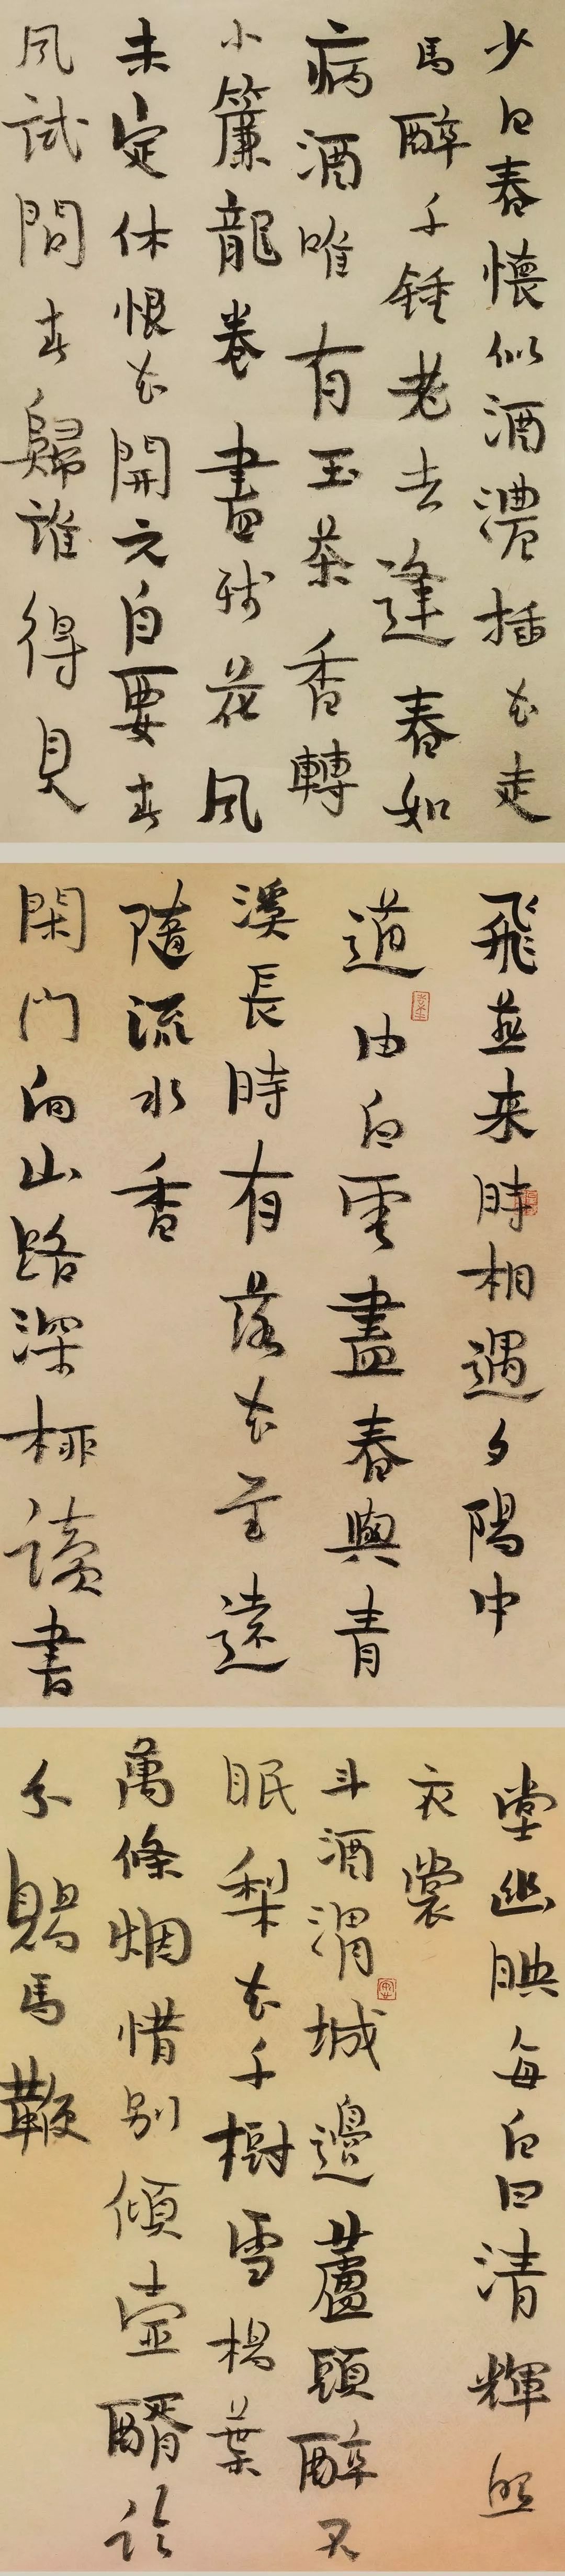 少日春懷似酒濃插花走
馬醉千鍾老去逢春如
病酒唯有玉茶香轉
小簾龍卷盡殘花風
未定休恨花開元自要春
風試問春歸誰得見
飛燕來時相遇夕陽中
道由白雲盡春與青
溪長時有落花至遠
隨流水香
閑門向山路深柳讀書
堂幽映每白日清輝照
衣裳
斗酒渭城邊蘆頭醉不
眠梨花千樹雪楊葉
萬條烟惜別傾壺醑臨
分賜馬鞭